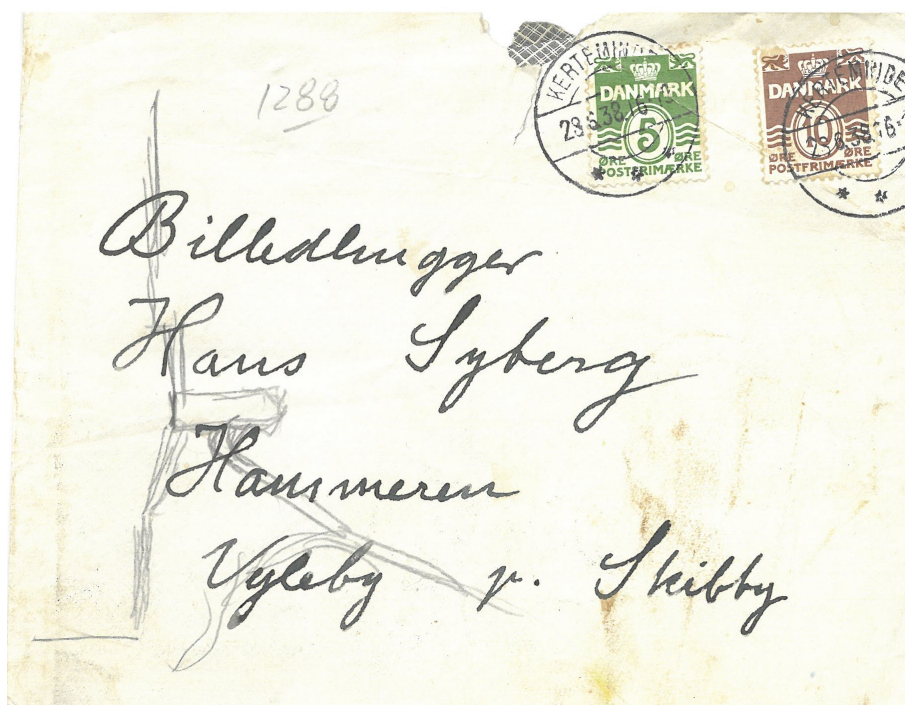 1288
KERTEMINDE
28.6.38.16-
DANMARK
5
ØRE ØRE
POSTFRIMÆRKE
KERTEMINDE
28.6.38.16-
DANMARK
10
ØRE ØRE
POSTFRIMÆRKE
Billedhugger
Hans Syberg
Hammeren
Vyleby p. Skibby